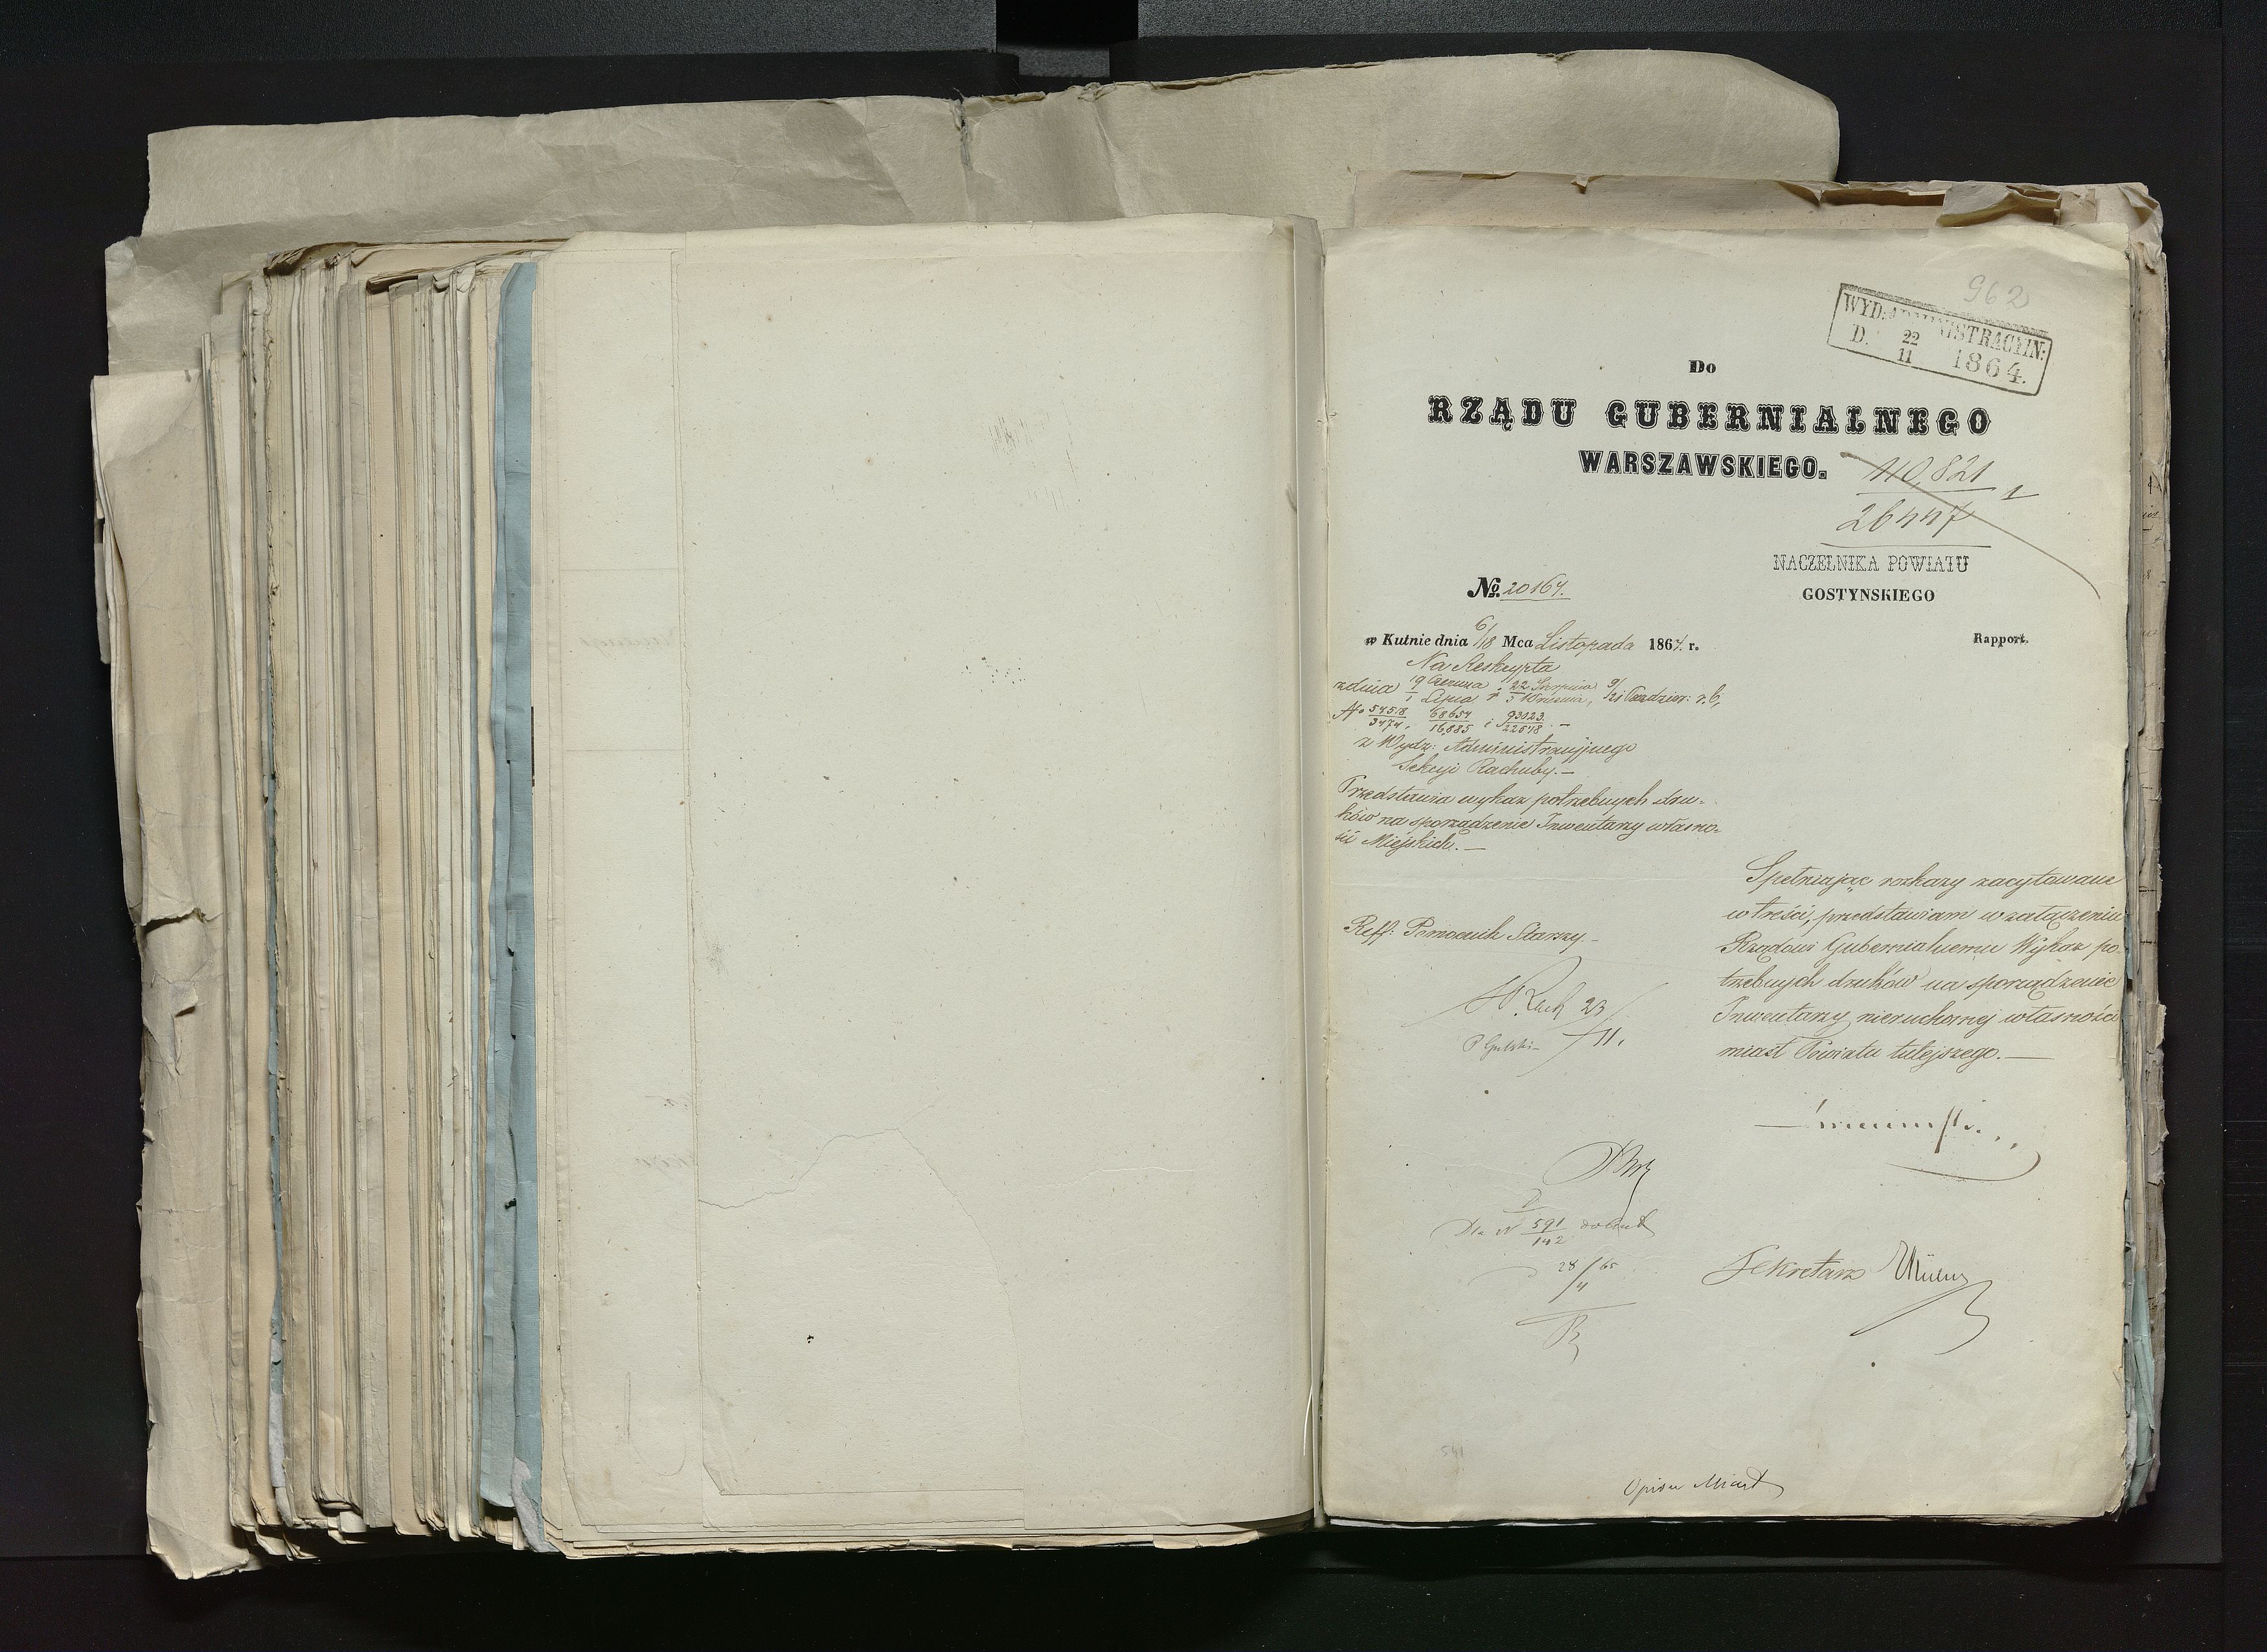 962
WYD: ADMINISTRACYIN:
D. 22/11 1864.
Do
RZĄDU GUBERNIALNEGO
WARSZAWSKIEGO.
110,821 1
26447
NACZELNIKA POWIATU
GOSTYNSKIEGO
No. 20164.
w Kutnie dnia 6/18 Mca Listopada 1864. r.
Rapport.
Na Reskrypta
z dnia 19 Czerwca/1 Lipca i 22 Sierpnia/3 Września, 9/21 Paździer: r. b,
No 54518/3474, 68654/16885 i 93023/22548 –
z Wydz: Administracyjnego
Sekcyi Rachuby. –
Przedstawia wykaz potrzebnych dru-
ków na sporządzenie Inwentarzy własno-
ści Miejskich. –
Spełniając rozkazy zacytowane
w treści, przedstawiam w załączeniu
Rządowi Gubernialnemu Wykaz po-
trzebnych druków na sporządzenie
Inwentarzy nieruchomej własności
miast Powiatu tutejszego. –
Reff: Pomocnik Starszy –
Rach 23/11.
Dla N 591/142
28/4 65
Sekretarz
541
Opisu Miast